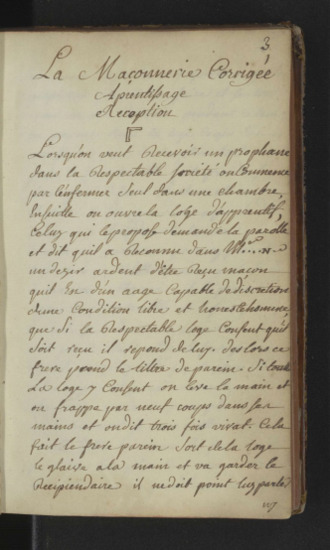 3
La Maçonnerie Corrigée
Aprentissage
Réception
Lorsqu'on veut Recevoir un prophane
dans la Respectable société on Commence
par l'enfermer seul dans une chambre,
Ensuitte on ouvre la loge d'apprentif,
Celuy qui le propose demande la parolle
et dit quil a Reconnu dans Mr...N...
un desir ardent d'être Reçu maçon
quil En d'un aage Capable de discretion
d'une Condition libre et
que si la Respectable loge Consent quil
soit reçu il repond de luy. des lors ce
frere prend le titre de parein. Si toute
La loge y Consent on leve la main et
on frappe par neuf coups dans ses
mains et on dit trois fois vivat. Cela
fait le frere parein sort de la loge
le glaive a la main et va garder le
Recipiendaire il ne doit point luy parle
ny